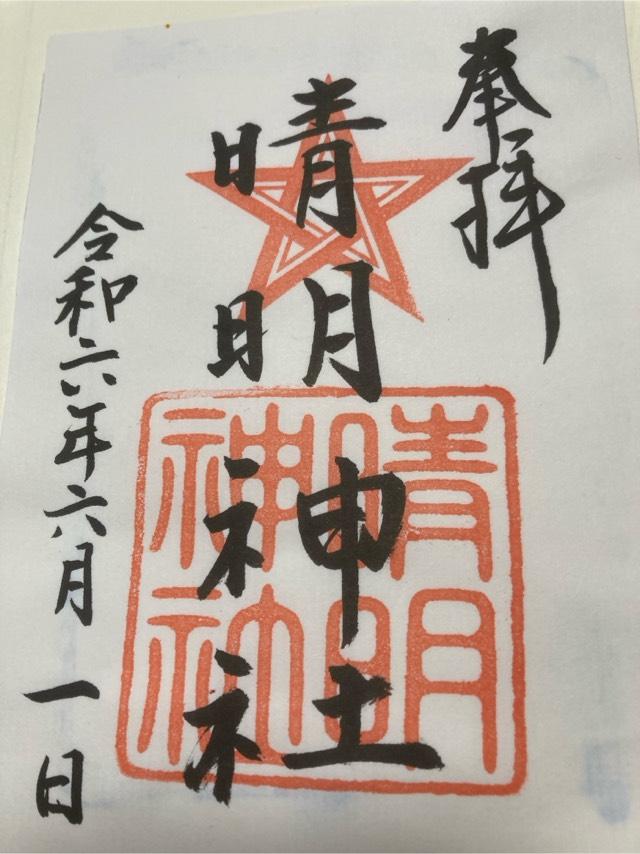 奉拝
晴明神社
晴明
神社
令和六年六月一日